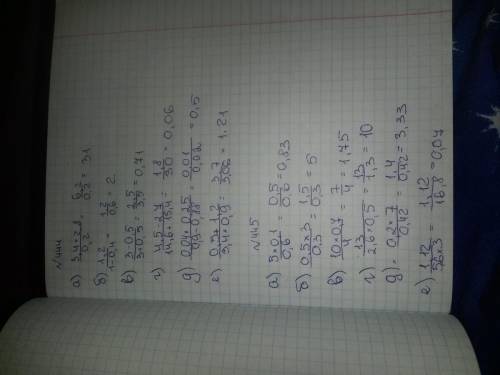 N444
а) 3,4+2,8 / 0,2 = 6,2 / 0,2 = 31
б) 1,2 / 1-0,4 = 1,2 / 0,6 = 2
в) 3-0,5 / 3+0,5 = 2,5 / 3,5 = 0,71
г) 4,5-2,7 / 14,6+15,4 = 1,8 / 30 = 0,06
д) = 0,01 / 0,02 = 0,5
е) = 3,7 / 3,06 = 1,21
N445
а) 5×0,1 / 0,6 = 0,5 / 0,6 = 0,83
б) 0,5×3 / 0,3 = 1,5 / 0,3 = 5
в) 10×0,7 / 4 = 7 / 4 = 1,75
г) 13 / 2,6×0,5 = 13 / 1,3 = 10
д) = 0,2×7 / 0,42 = 1,4 / 0,42 = 3,33
е) 1,12 / 56×3 = 1,12 / 16,8 = 0,07